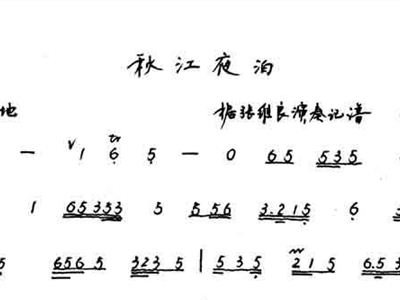 秋江夜泊
地 据张维良演奏记谱
— 1 6 5 — 0 65 535
1 65353 5 556 3.215 6 3
5 6565 3235 | 535 215 6.53